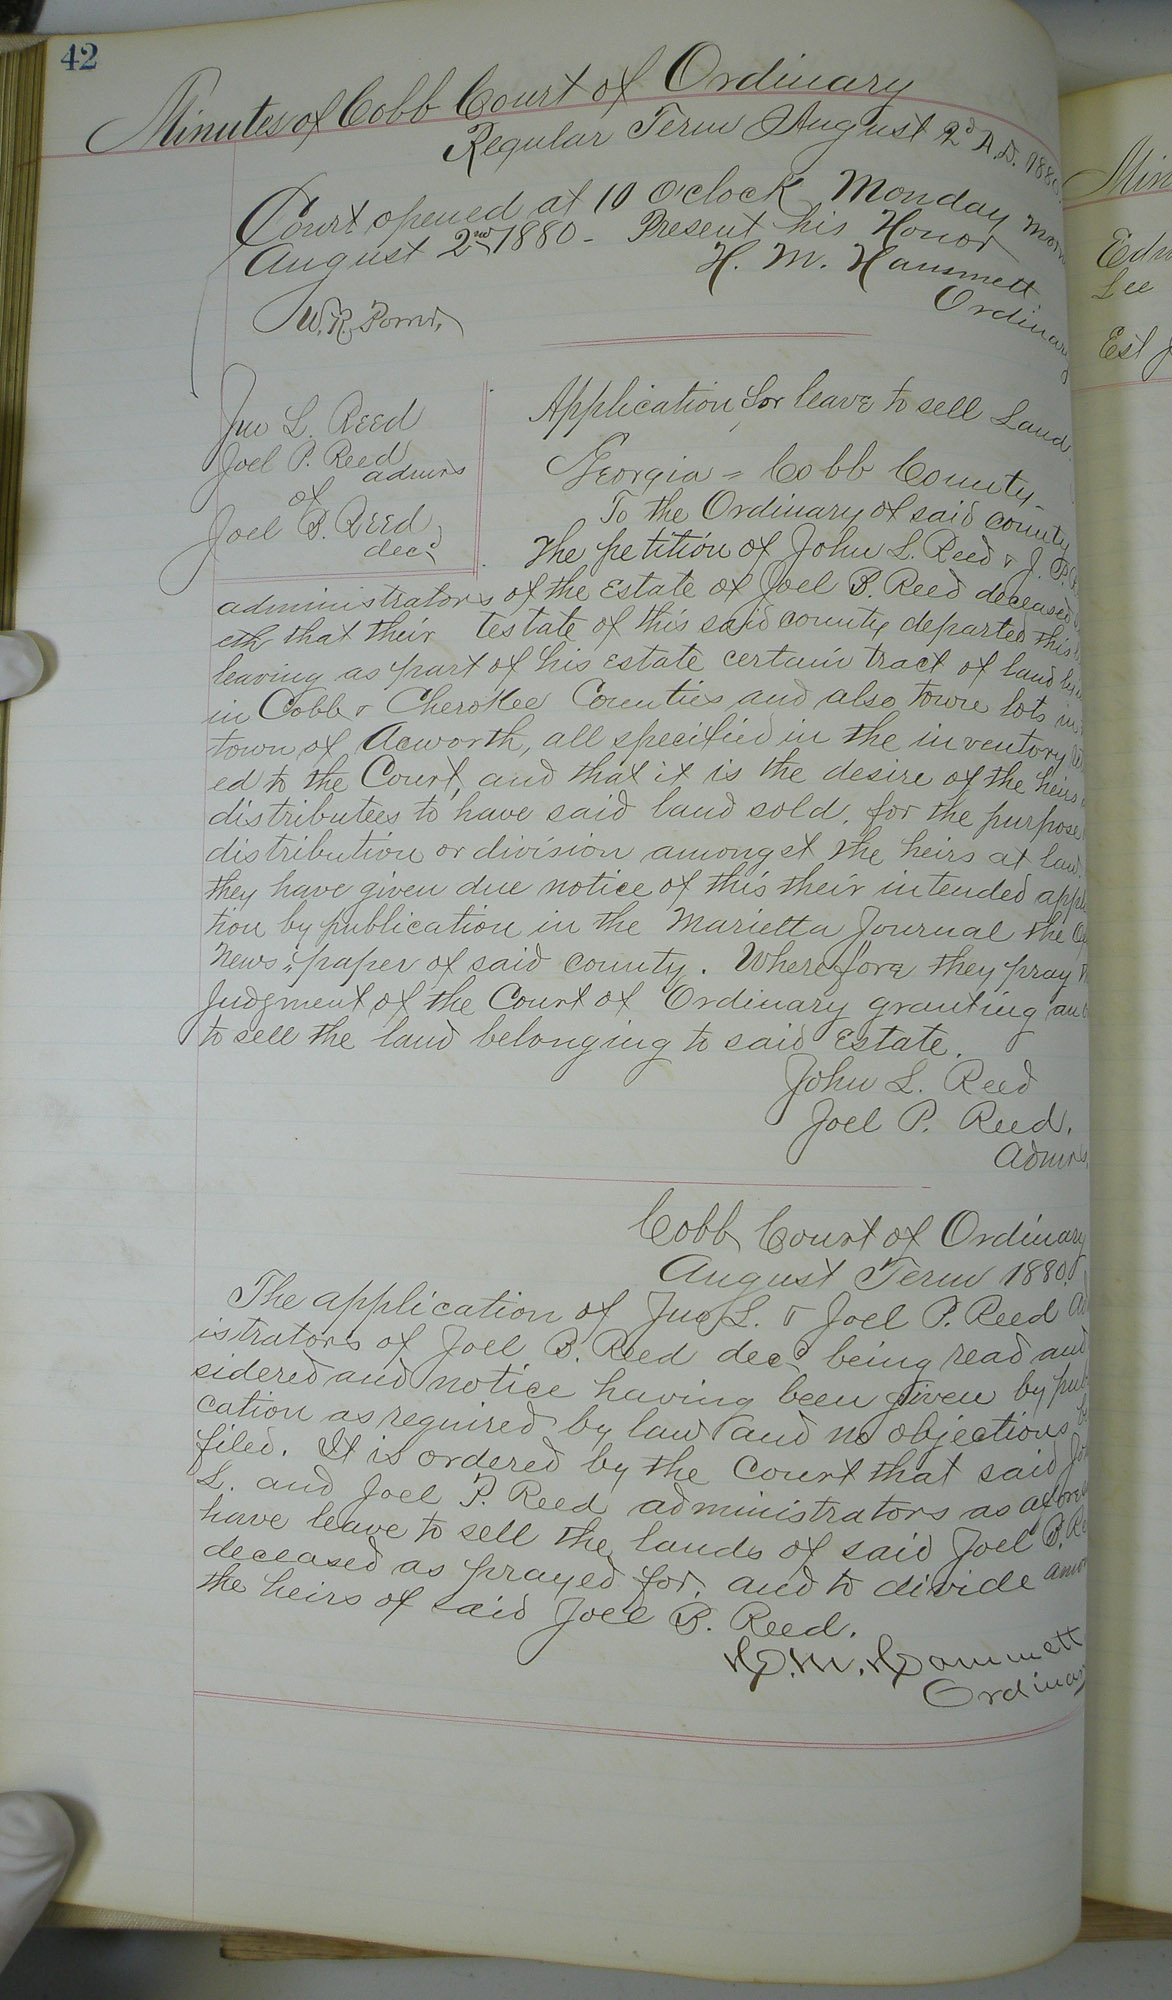 42
Minutes of Cobb Court of Ordinary
Regular Term August 2d A.D. 1880
Court opened at 10 O'clock Monday
August 2nd 1880 - Present his Honor
H. M. Hammett
Ordinary
W. R.
Jno L. Reed
Joel P. Reed
admrs
of
Joel B. Reed
decd
Application for leave to sell Land
Georgia = Cobb County
To the Ordinary of said county
The petition of John L. Reed & J. P.
administrators of the Estate of Joel B. Reed deceased
eth that their testate of this said county departed this
leaving as part of his estate certain tract of land
in Cobb & Cherokee Counties and also towne lots in
town of Acworth, all specified in the inventory
ed to the Court, and that it is the desire of the heirs
distributees to have said land sold, for the purpose
distribution or division amongst the heirs at law.
they have given due notice of this their intended appl
tion by publication in the Marietta Journal the
News=paper of said county. Wherefore they pray
Judgment of the Court of Ordinary granting an
to sell the land belonging to said Estate.
John L. Reed
Joel P. Reed,
Admrs.
Cobb Court of Ordinary
August Term 1880.
The application of Jno L. & Joel P. Reed Ad
istrators of Joel B. Reed decd being read and
sidered and notice having been given by pub
cation as required by law and no objections
filed. It is ordered by the Court that said
L. and Joel P. Reed administrators as afore
have leave to sell the lands of said Joel B. Re
deceased as prayed for, and to divide amon
the heirs of said Joel B. Reed.
H. M. Hammett
Ordinary
Min
Edw
Lee
Est